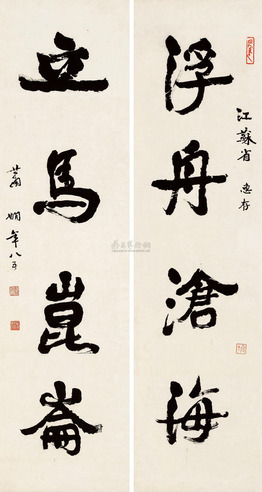 浮舟滄海
江蘇省 惠存
立馬崑崙
蕭嫻年八五